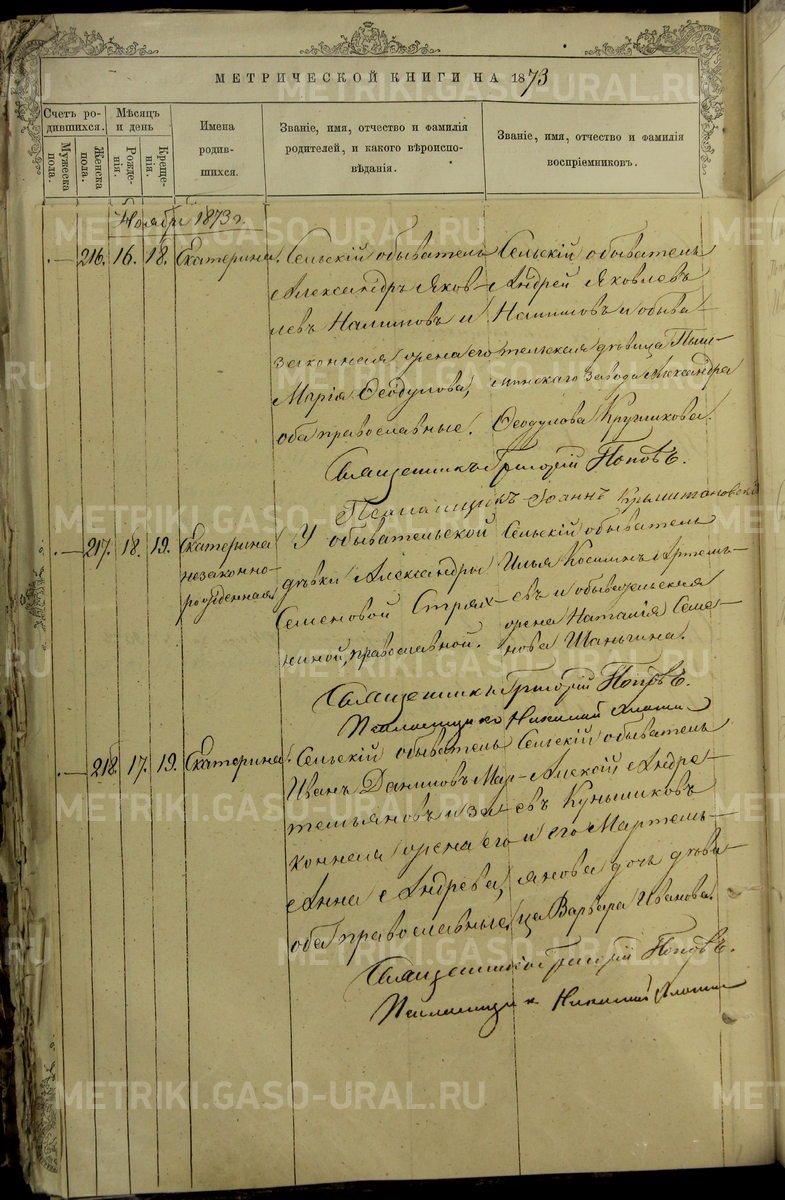 МЕТРИЧЕСКОЙ КНИГИ НА 1873
Счетъ ро-
дившихся.
Мужеска
пола.
Женска
пола.
Мѣсяцъ
и день
Рожде-
нія.
Креще-
нія.
Имена
родив-
шихся.
Званіе, имя, отчество и фамилія
родителей, и какого вѣроиспо-
вѣданія.
Званіе, имя, отчество и фамилія
воспріемниковъ.
Ноябрь 1873 г.
216. 16. 18. Екатерина.
Сельскій обыватель
Александръ Яков-
левъ Налимовъ и
законная жена его
Марія Ѳеодулова,
оба православные.
Сельскій обыватель
Андрей Яковлевъ
Налимовъ и обыва-
тельская дѣвица Пыш-
минскаго завода Александра
Ѳеодулова Кружкова.
Священникъ Григорій Поповъ.
Псаломщикъ Іоаннъ
217. 18. 19. Екатерина
незаконно-
рожденная
У обывательской
дѣвки Александры
Семеновой
православной.
Сельскій обыватель
Илья Косминъ Артемь-
евъ и обывательская
жена Наталія Семе-
нова Шаньгина.
Священникъ Григорій Поповъ.
Псаломщикъ Николай
218. 17. 19. Екатерина.
Сельскій обыватель
Иванъ Даниловъ Мар-
темьяновъ и за-
конная жена его
Анна Андрева,
оба православные.
Сельскій обыватель
Алексій Андре-
евъ Куньщиковъ
и его Мартемь-
янова дочь дѣви-
ца Варвара Иванова.
Священникъ Григорій Поповъ.
Псаломщикъ Николай
METRIKI.GASO-URAL.RU